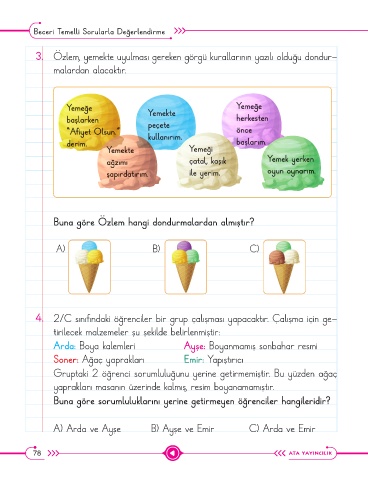 Beceri Temelli Sorularla Değerlendirme
3. Özlem, yemekte uyulması gereken görgü kurallarının yazılı olduğu dondur-
malardan alacaktır.
Yemeğe
başlarken
"Afiyet Olsun."
derim.
Yemekte
ağzımı
şapırdatırım.
Yemekte
peçete
kullanırım.
Yemeği
çatal, kaşık
ile yerim.
Yemeğe
herkesten
önce
başlarım.
Yemek yerken
oyun oynarım.
Buna göre Özlem hangi dondurmalardan almıştır?
A) B) C)
4. 2/C sınıfındaki öğrenciler bir grup çalışması yapacaktır. Çalışma için ge-
tirilecek malzemeler şu şekilde belirlenmiştir:
Arda: Boya kalemleri Ayşe: Boyanmamış sonbahar resmi
Soner: Ağaç yaprakları Emir: Yapıştırıcı
Gruptaki 2 öğrenci sorumluluğunu yerine getirmemiştir. Bu yüzden ağaç
yaprakları masanın üzerinde kalmış, resim boyanamamıştır.
Buna göre sorumluluklarını yerine getirmeyen öğrenciler hangileridir?
A) Arda ve Ayşe B) Ayşe ve Emir C) Arda ve Emir
78 ATA YAYINCILIK